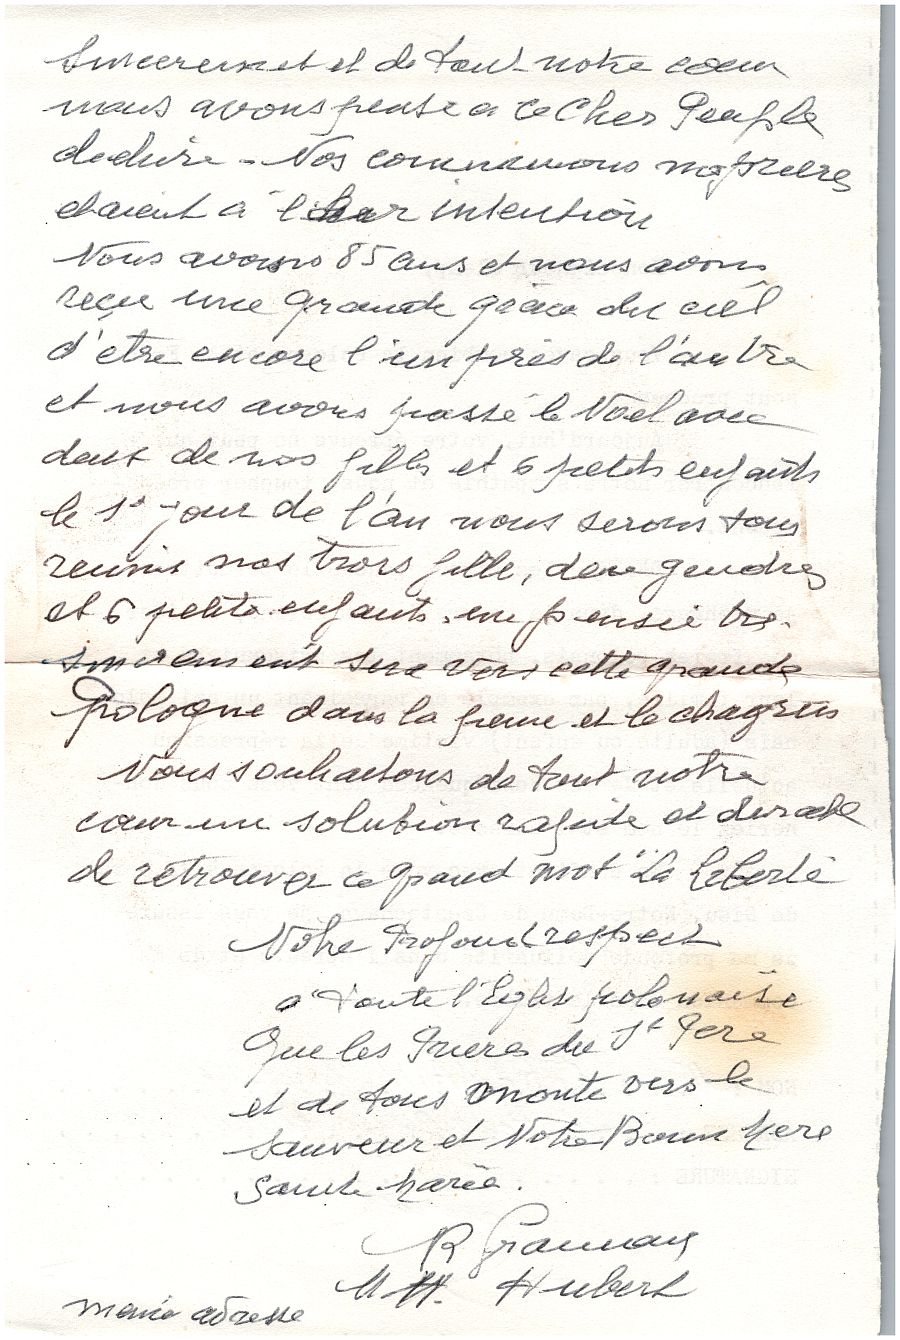 Sincerement et de tout notre coeur
nous avons pensé a ce Cher Peuple
dechiré - Nos communions nos prieres
etaient à leur intention
Nous avons 85 ans et nous avons
reçu une grande grâce du ciel
d'etre encore l'un près de l'autre
et nous avons passé le Noel avec
deux de nos filles et 6 petits enfants
le 1er jour de l'an nous serons tous
reunis nos trois fille, deux gendres
et 6 petits enfants. une pensée tres
sincerement sera vers cette grande
Pologne dans la peine et le chagrin
Nous souhaitons de tout notre
coeur une solution rapide et durable
de retrouver ce grand mot "La Liberté
Notre Profond respect
a toute l'Eglise polonaise
Que les Prieres du St Pere
et de tous monte vers le
Sauveur et Notre Bonne Mere
Sainte Marie.
R
Hubert
meme adresse
SIGNATURE :